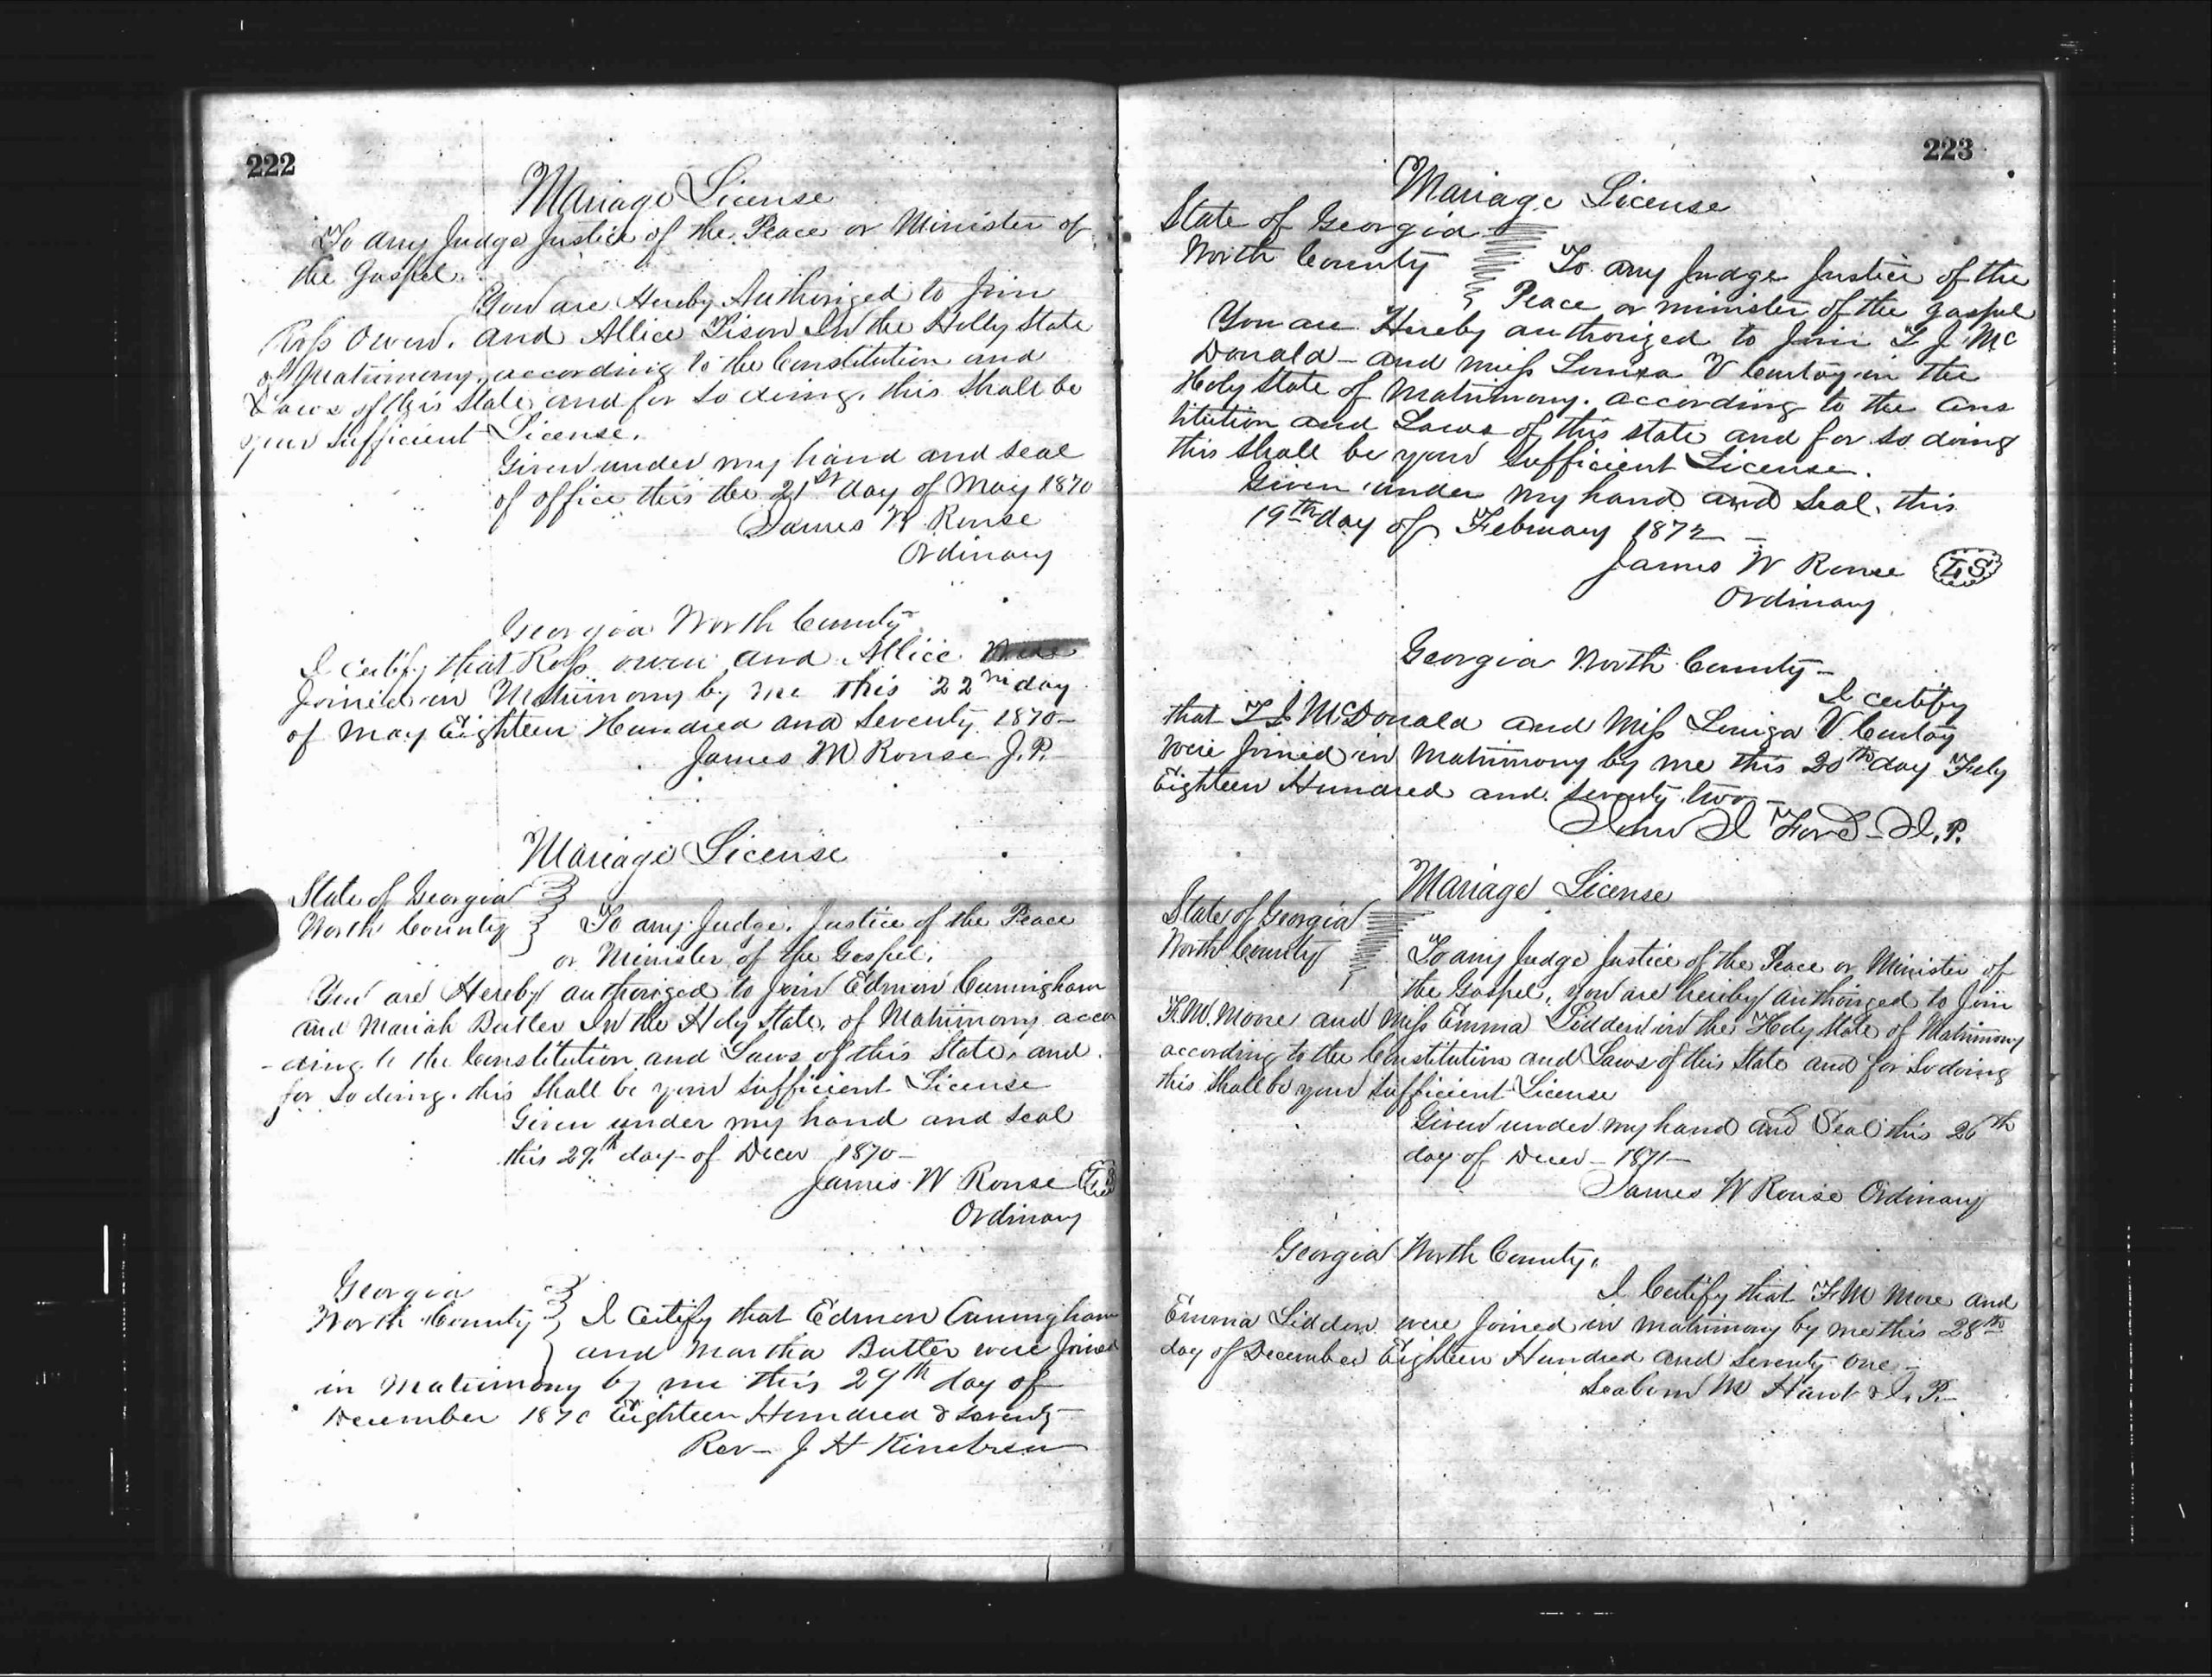 222
Mariage License
To any Judge Justice of the Peace or Minister of
the Gospel.
You are Hereby Authorized to Join
Ross Owen. and Allice Tison In the Holly State
of Matrimony, according to the Constitution and
Laws of this State and for so doing. this Shall be
your Sufficient License.
Given under my hand and seal
of office this the 21st day of May 1870
James W Rouse
Ordinary
Georgia Worth County
I Certify that Ross owen and Allice Were
Joined in Matrimony by me this 22nd day
of May Eighteen Hundred and Seventy 1870-
James M Rouse J.P.
Mariage License
State of Georgia
Worth County To any Judge. Justice of the Peace
or Minister of the Gospel.
You are Hereby authorized to Join Edmon Cunningham
and Mariah Butler In the Holy State, of Matrimony accor
-ding to the Constitution and Laws of this State, and
for so doing. this Shall be your Sufficient License
Given under my hand and seal
this 29th day of Decer 1870-
James W Rouse LS
Ordinary
Georgia
Worth County I Certify that Edmon Cunningham
and Martha Butler were Joined
in Matrimony by me this 29th day of
December 1870 Eighteen Hundred & Seventy
Rev- J H
223
Mariage License
State of Georgia
Worth County To any Judge Justice of the
Peace or minister of the gospel
You are Hereby authorized to Join T J Mc
Donald- and miss Louiza V in the
Holy State of Matrimony. according to the Cons
titution and Laws of this state and for so doing
this Shall be your Sufficient License.
Given under my hand and Seal, this
19th day of February 1872-
James W Rouse LS
Ordinary
Georgia Worth County-
I certify
that T J McDonald and Miss Louiza V
were Joined in Matrimony by me this 20th day Feby
Eighteen Hundred and Seventy two-
John J Ford- J.P.
Mariage License
State of Georgia
Worth County To any Judge Justice of the Peace or Minister of
the Gospel, you are hereby authorized to Join
F.M. Moore and Miss Emma Lidden in the Holy State of Matrimony
according to the Constitution and Laws of this State and for So doing
this Shall be your Sufficient License
Given under my hand and Seal this 26th
day of Decer- 1871-
James W Rouse Ordinary
Georgia Worth County.
I Certify that F M More and
Emma Liddon were Joined in matrimony by me this 28th
day of December Eighteen Hundred and Seventy One-
Seaborn M J.P.